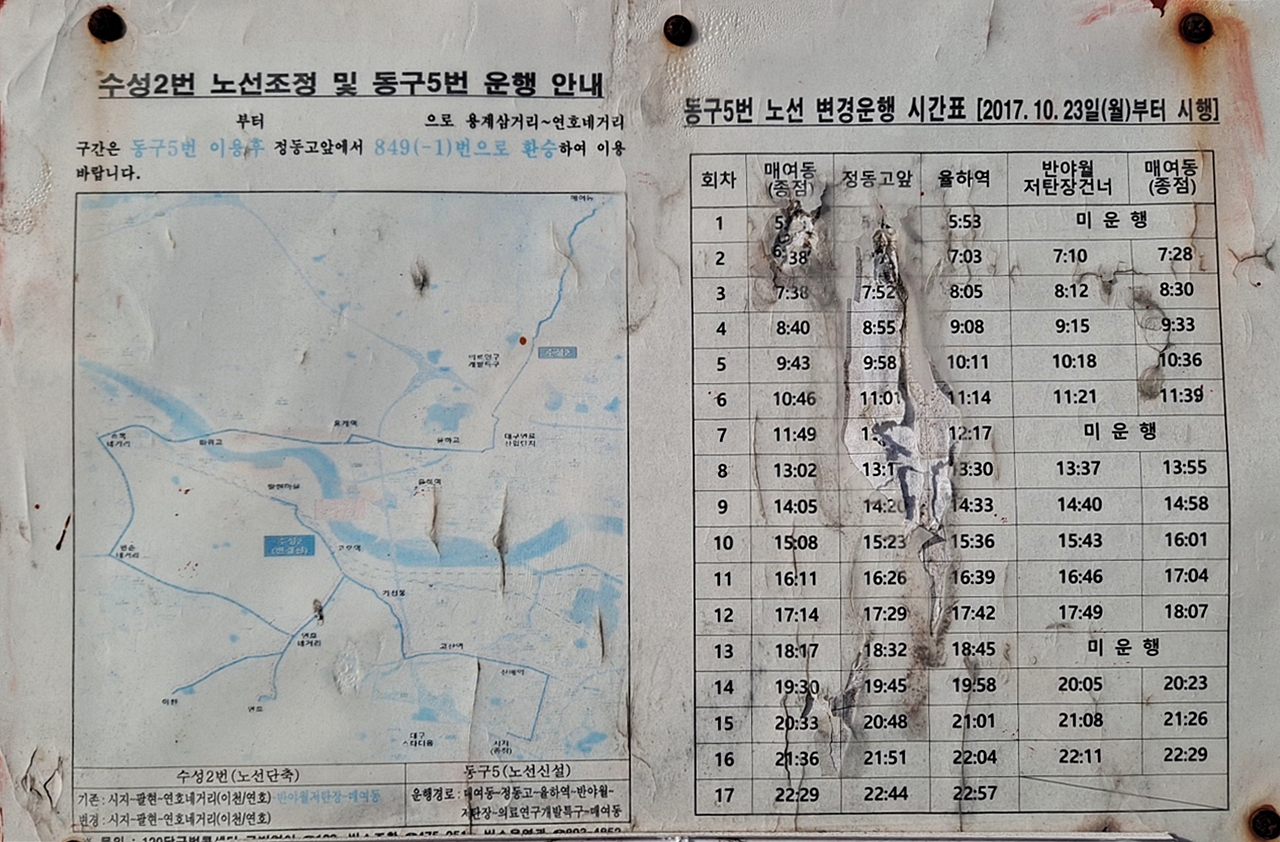 수성2번 노선조정 및 동구5번 운행 안내
부터 으로 용계삼거리~연호네거리
구간은 동구5번 이용후 정동고앞에서 849(-1)번으로 환승하여 이용
바랍니다.
매여동
의료연구
개발특구
수성2
용계역
율하고
대구연료
산업단지
네거리
율하역
팔현마을
수성2
고모역
네거리
가천동
연호
네거리
고산역
신매역
이천
연호
대구
스타디움
시지
(종점)
수성2번(노선단축) 동구5(노선신설)
기존 : 시지~팔현~연호네거리(이천/연호)~반야월저탄장~매여동
변경 : 시지~팔현~연호네거리(이천/연호)
운행경로 : 매여동~정동고~율하역~반야월~
저탄장~의료연구개발특구~매여동
동구5번 노선 변경운행 시간표 [2017. 10. 23일(월)부터 시행]
회차 매여동(종점) 정동고앞 율하역 반야월저탄장건너 매여동(종점)
1 5:53 미 운 행
2 7:03 7:10 7:28
3 7:38 7:52 8:05 8:12 8:30
4 8:40 8:55 9:08 9:15 9:33
5 9:43 9:58 10:11 10:18 10:36
6 10:46 11:01 11:14 11:21 11:39
7 11:49 12:17 미 운 행
8 13:02 13:30 13:37 13:55
9 14:05 14:20 14:33 14:40 14:58
10 15:08 15:23 15:36 15:43 16:01
11 16:11 16:26 16:39 16:46 17:04
12 17:14 17:29 17:42 17:49 18:07
13 18:17 18:32 18:45 미 운 행
14 19:30 19:45 19:58 20:05 20:23
15 20:33 20:48 21:01 21:08 21:26
16 21:36 21:51 22:04 22:11 22:29
17 22:29 22:44 22:57